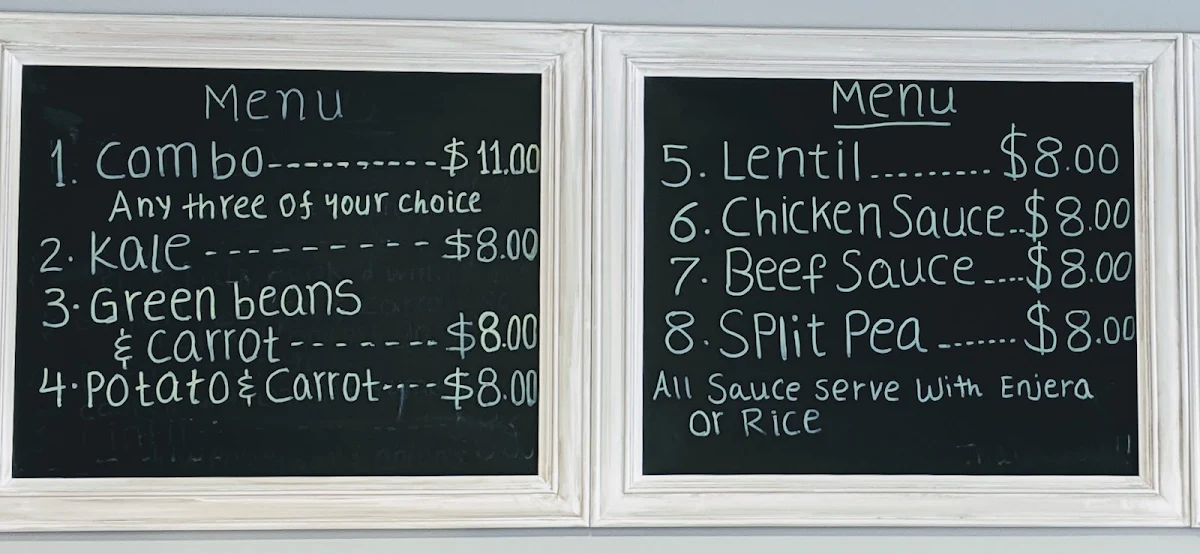 Menu
1. Combo----------$11.00
Any three of your choice
2. Kale ---------$8.00
3. Green beans
& Carrot-------$8.00
4. Potato & Carrot----$8.00
Menu
5. Lentil.........$8.00
6. Chicken Sauce..$8.00
7. Beef Sauce....$8.00
8. SPlit Pea.......$8.00
All Sauce serve With Enjera
or Rice